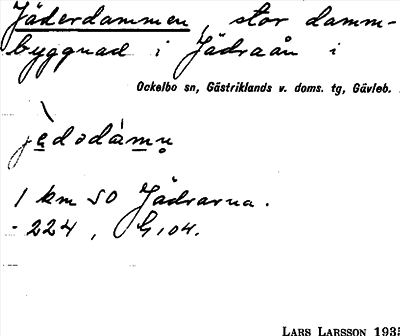 Jäderdammen, stor damm-
byggnad i Jädraån i
Ockelbo sn, Gästriklands v. doms. tg, Gävleb.
jèdədàmṇ
1 km SO Jädrarna.
-224, G104.
LARS LARSSON 1935